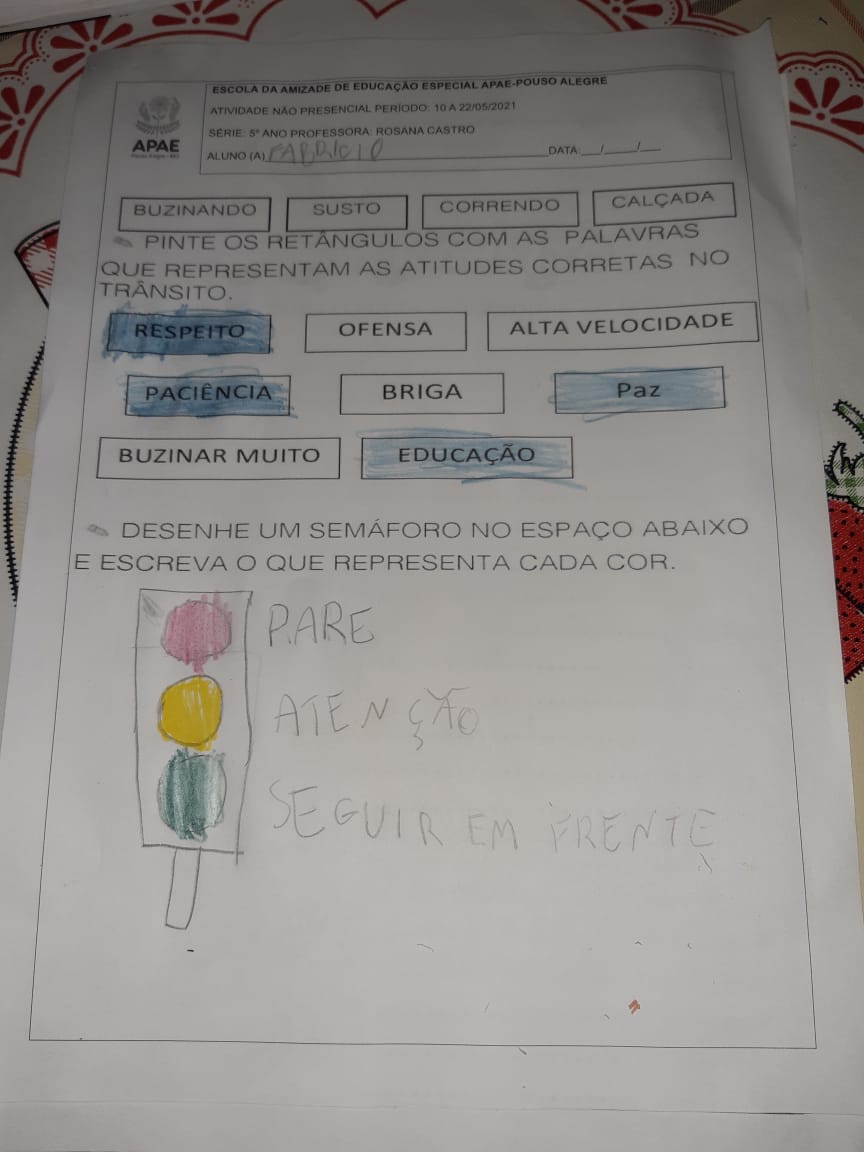 ESCOLA DA AMIZADE DE EDUCAÇÃO ESPECIAL APAE-POUSO ALEGRE
ATIVIDADE NÃO PRESENCIAL PERÍODO: 10 A 22/05/2021
SÉRIE: 5º ANO PROFESSORA: ROSANA CASTRO
APAE
ALUNO (A) FABRICIO DATA: __/____/__
BUZINANDO SUSTO CORRENDO CALÇADA
PINTE OS RETÂNGULOS COM AS PALAVRAS
QUE REPRESENTAM AS ATITUDES CORRETAS NO
TRÂNSITO.
RESPEITO OFENSA ALTA VELOCIDADE
PACIÊNCIA BRIGA Paz
BUZINAR MUITO EDUCAÇÃO
DESENHE UM SEMÁFORO NO ESPAÇO ABAIXO
E ESCREVA O QUE REPRESENTA CADA COR.
PARE
ATENÇÃO
SEGUIR EM FRENTE